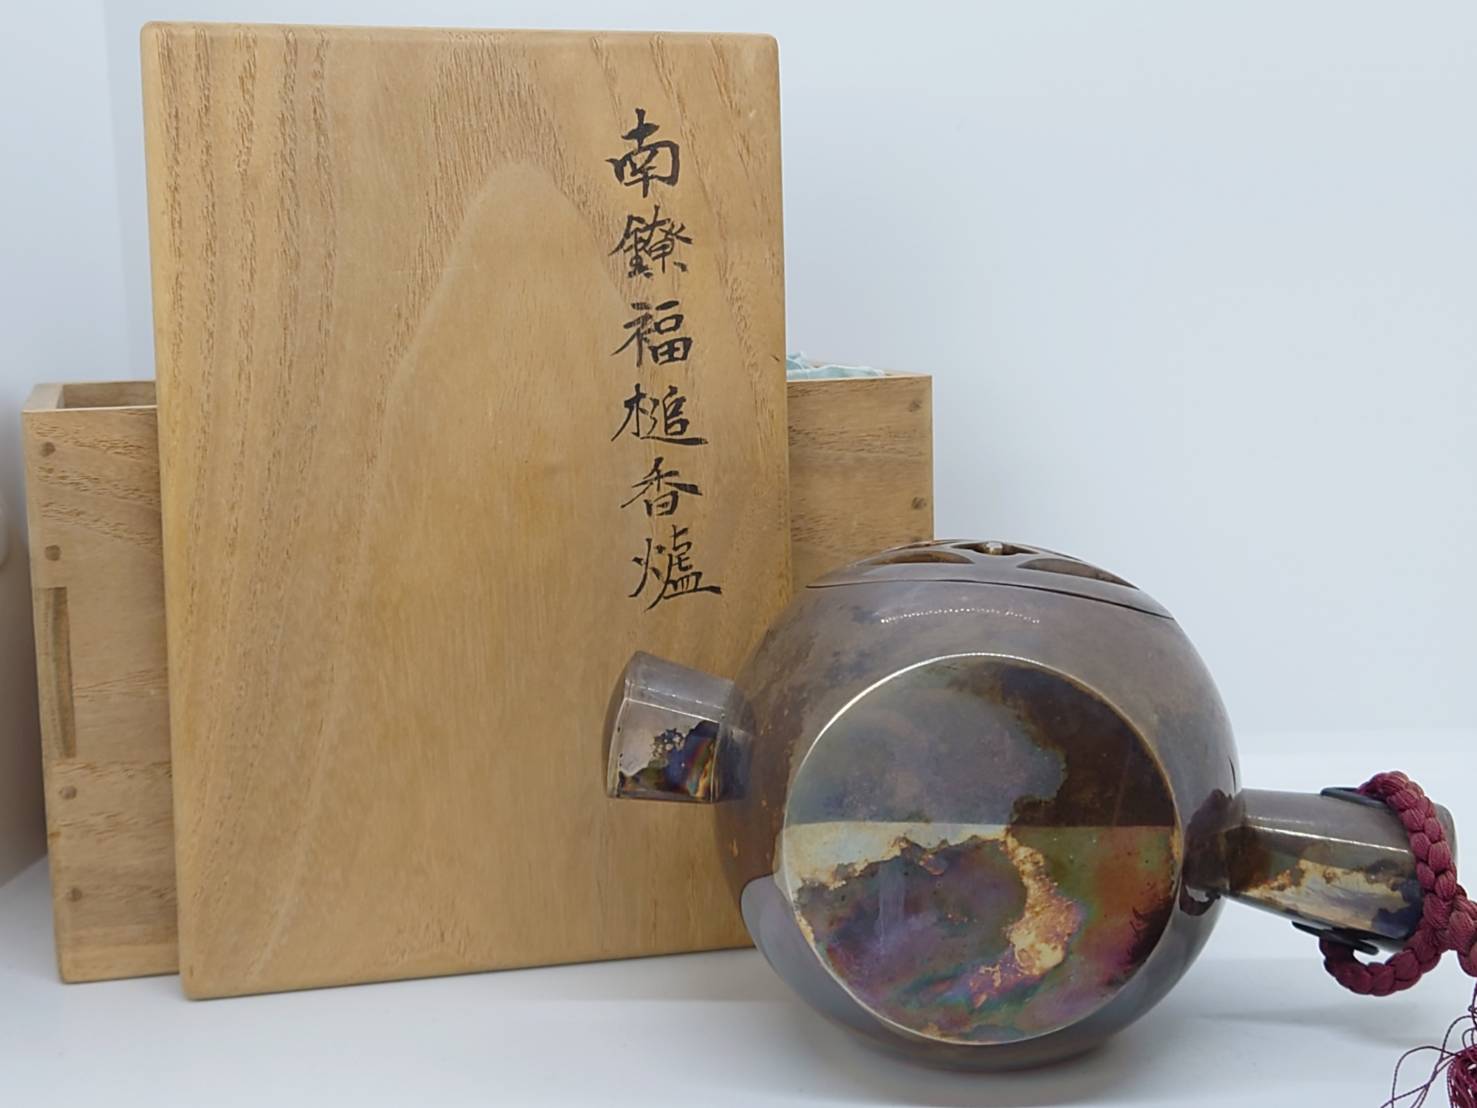 南鐐福槌香爐